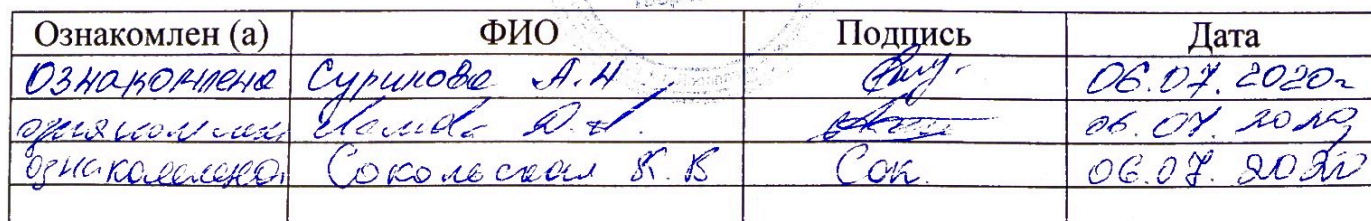 Ознакомлен (а) ФИО Подпись Дата
Ознакомлена Сурикова А.Н 06.07.2020г
ознакомлен Д.А. 06.07.2020
ознакомлена Сокольская К.В Сок. 06.07.2020